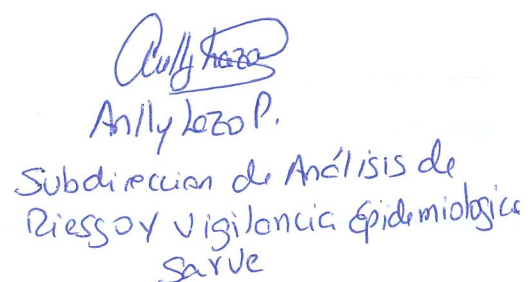 Anlly Lozo P.
Subdireccion de Análisis de
Riesgo y Vigilancia Epidemiologica
Sarve